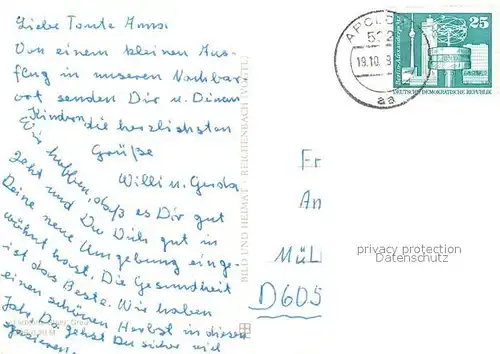 Liebe Tante Anna.
Von einem kleinen Aus-
flug in unseren Nachbar-
ort senden Dir u. Deinen
Kindern die herzlichsten
Grüße
Willi u. Gerda
Wir hoffen, daß es Dir gut
geht und Du Dich gut in
Deine neue Umgebung einge-
wöhnt hast. Die Gesundheit
ist das Beste. Wir haben
einen schönen Herbst in diesem
Jahr. Da gehst Du sicher viel
spazieren.
BILD UND HEIMAT REICHENBACH (VOGTL)
APOLDA
19.10.8
aa
25
Berlin-Alexanderplatz
DEUTSCHE DEMOKRATISCHE REPUBLIK
Fr
An
Mül
D605
privacy protection
Datenschutz